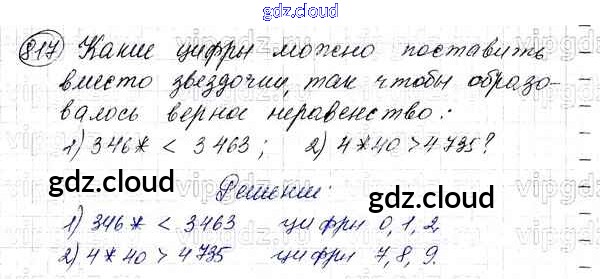 gdz.cloud
817 Какие цифры можно поставить
вместо звездочки, так чтобы образо-
валось верное неравенство:
1) 346* < 3463; 2) 4*40 > 4735?
gdz.cloud
gdz.cloud
Решение:
1) 346* < 3463 цифры 0, 1, 2.
2) 4*40 > 4735 цифры 7, 8, 9.
gdz.cloud